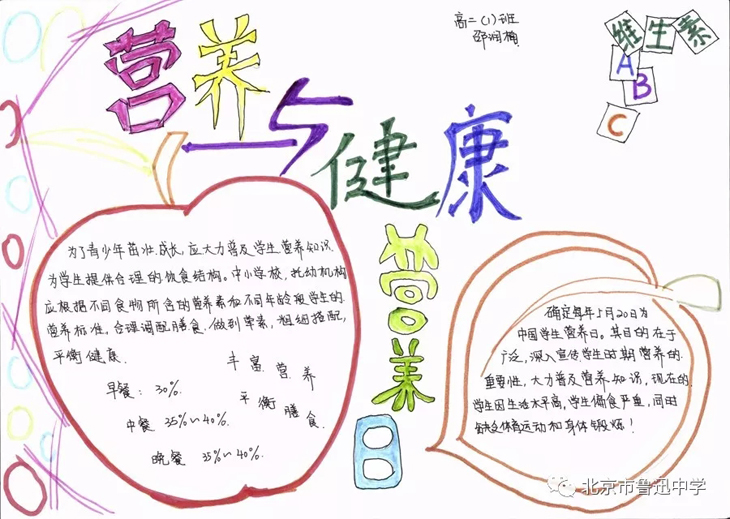 营养与健康
高二(1)班
邵润梅
维生素
A
B
C
为了青少年茁壮成长,应大力普及学生营养知识.
为学生提供合理的饮食结构。中小学校,托幼机构
应根据不同食物所含的营养素和不同年龄段学生的
营养标准,合理调配膳食.做到荤素,粗细搭配,
平衡健康.
早餐:30%.
中餐 35%~40%.
晚餐 35%~40%.
丰富营养
平衡膳食.
营养日
确定每年5月20日为
中国学生营养日。其目的在于
广泛,深入宣传学生时期营养的
重要性,大力普及营养知识,现在的
学生因生活水平高,学生偏食严重,同时
缺乏体育运动和身体锻炼!
北京市鲁迅中学